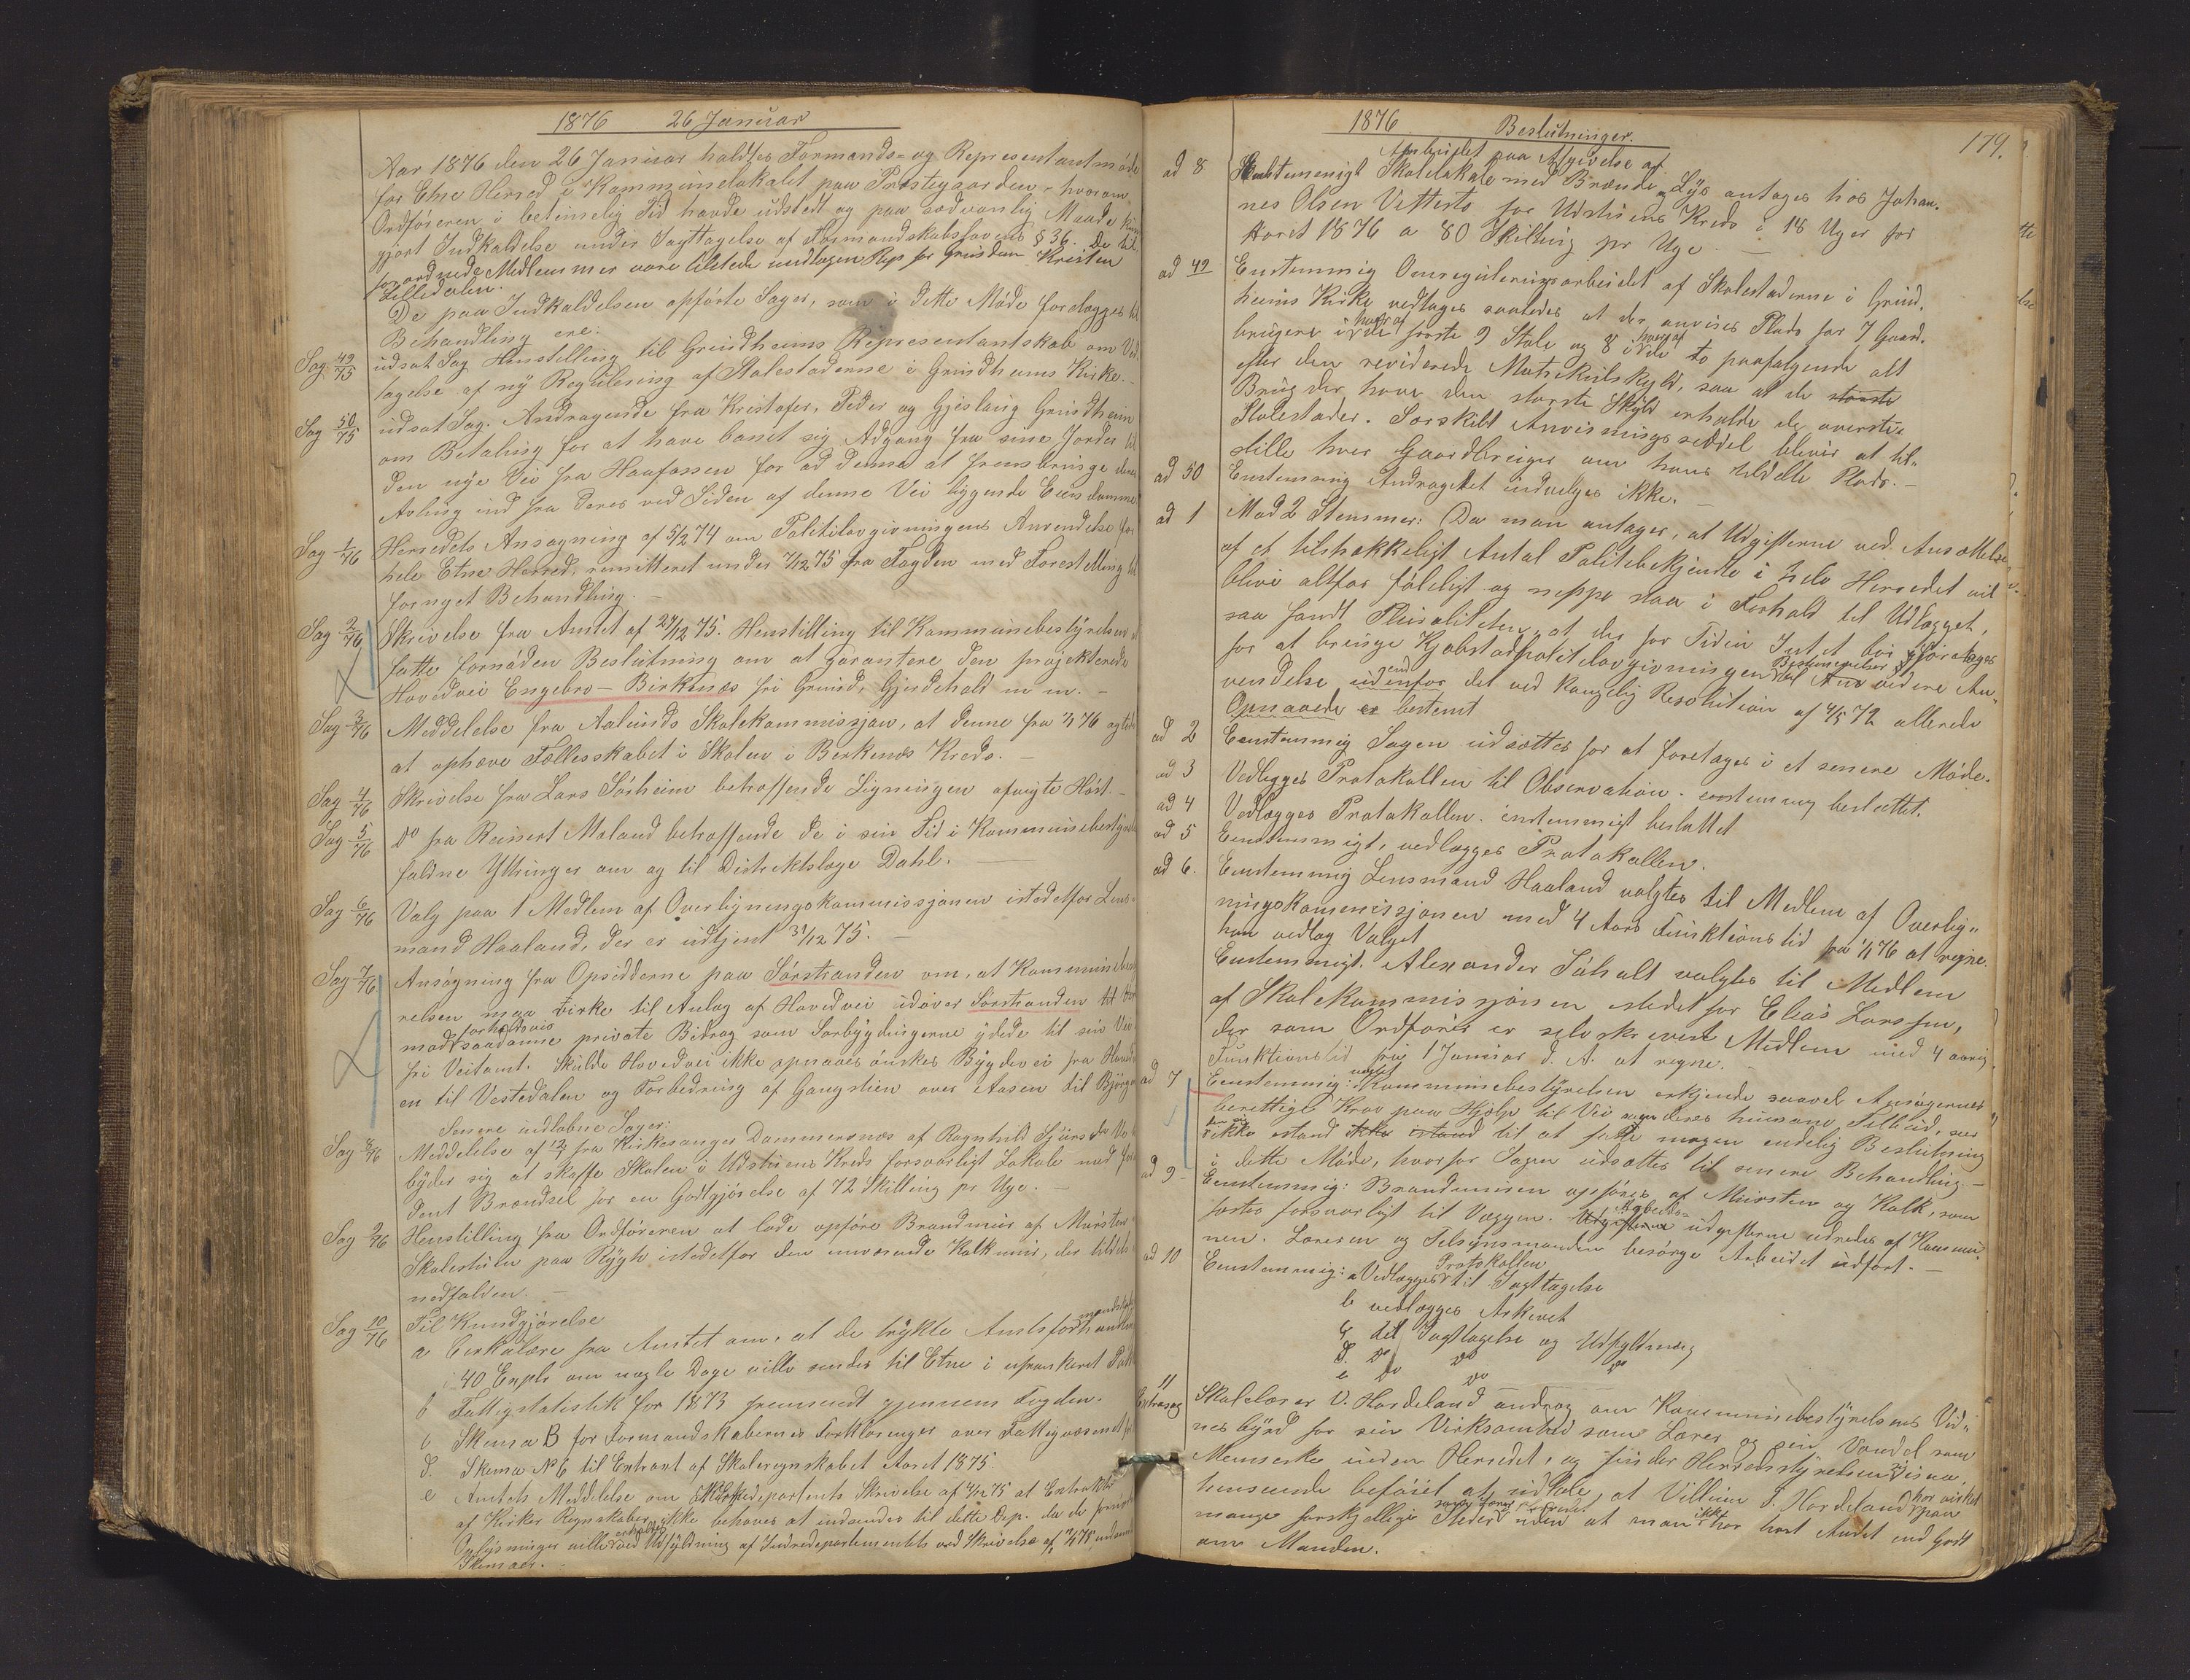 1876 26 Januar
Aar 1876 den 26 Januar holdtes Formands- og Representantmøde
for Etne Herred i Kommunelokalet paa Præstegaarden, hvorom
Ordføreren i betimelig Tid havde udstedt og paa sædvanlig Maade
gjort Indkaldelse under Iagttagelse af Formandskabslovens § 36. De til
forordnede Medlemmer vare tilstede undtagen Rep for Grindem Kristen
Lilledalen.
De paa Indkaldelsen opførte Sager, som i dette Møde forelægges til
Behandling ere:
Sag 49/75 udsat Sag. Henstilling til Grindheims Representantskab om Ved
tagelse af ny Regulering af Stolestaderne i Grindheims Kirke.
Sag 50/75 udsat Sag. Andragende fra Kristofer, Peder og Gjeslaug Grindheim
om Betaling for at have banet sig Adgang fra sine Jorder til
den nye Vei fra Haafossen for ad denne at frembringe deres
Avling ind fra deres ved Siden af denne Vei liggende Eiendomme
Sag 1/76 Herredets Ansøgning af 5/2 74 om Politilovgivningens Anvendelse for
hele Etne Herred, remitteret under 7/12 75 fra Fogden med Forestilling til
fornyet Behandling.
Sag 2/76 Skrivelse fra Amtet af 29/12 75. Henstilling til Kommunebestyrelsen at
fatte fornøden Beslutning om at garantere den projekterede
Hovedvei Engebro - Birkenæs fri Grund, Gjerdehold m m. -
Sag 3/76 Meddelelse fra Aalunds Skolekommissjon, at denne fra 1/1 76 agter
at ophæve Fællesskabet i Skolen i Berkenæs Kreds. -
Sag 4/76 Skrivelse fra Lars Sørheim betræffende Ligningen afvigte Høst. -
Sag 5/76 do fra Reinert Maland betræffende de i sin Tid i Kommunebestyrelsen
faldne Yttringer om og til Distriktslæge Dahl.
Sag 6/76 Valg paa 1 Medlem af Overligningskommissjonen istedetfor Lens-
mand Haaland, der er udtjent 31/12 75.
Sag 7/76 Ansøgning fra Opsidderne paa Sørstranden om, at Kommunebesty
relsen maa virke til Anlæg af Hovedvei udover Sørstranden
mod forholdsvis saadanne private Bidrag som Sørbygdingerne ydede til sin Vei
fri Veitomt. Skulde Hovedvei ikke opnaaes ønskes Bygdevei fra
en til Vestedalen og Forbedring af Gangstien over Aasen til
Senere indløbne Sager:
Sag 8/76 Meddelelse af 12/1 fra Kirkesanger Dommersnæs af Ragnhild
byder sig at skaffe Skolen i Udstriens Kreds forsvarligt Lokale med
dent Brændsel for en Godtgjørelse af 72 Skilling pr Uge. -
Sag 9/76 Henstilling fra Ordføreren at lade opføre Brandmur af Mursten
Skolestuen paa Rygh istedetfor den nuværende Kalkmur, der tildels
nedfalden. -
Sag 10/76 Til Kundgjørelse
a Cirkulære fra Amtet om, at de trykte Amtsformandskabs
i 40 Expl. om nogle Dage ville sendes til Etne i ufrankeret
b Fattigstatistik for 1873 fremsendt gjennem Fogden.
c Skema B for Formandskabernes Forklaringer over Fattigvæsenet
d. Skema No 6 til Extrakt af Skoleregnskabet Aaret 1875
e Amtets Meddelelse om Kirkedepartements Skrivelse af 4/12 75 at Extrakter
af Kirkers Regnskaber ikke behøves at indsendes til dette Dep. da de
Oplysninger ville erholdes ved Udfyldning af Indredepartementets ved Skrivelse af
Skemaer. -
1876 Beslutninger. 179.
ad 8 Enstemmigt Anbudet paa Afgivelse af
Skolelokale med Brænde og Lys antages hos Johan-
nes Olsen Vetterts for Udstriens Kreds i 18 Uger for
Aaret 1876 a 80 Skilling pr Uge. -
ad 49 Enstemmig Omreguleringsarbeidet af Stolestaderne i Grind-
heims Kirke vedtages saaledes at der anvises Plads for 7 Gaard-
brugere i hver af de første 9 Stole og 8 i hver af de to paafølgende alt
efter den reviderede Matrikulskyld, saa at de største
Brug der have den største Skyld erholde de øverste
Stolestader. Særskilt Anvisningsseddel bliver at til-
stille hver Gaardbruger om hans tildelte Plads. -
ad 50 Enstemmig Andraget indvilges ikke. -
ad 1 Mod 2 Stemmer: Da man antager, at Udgifterne ved Ansættelse
af et tilstrækkeligt Antal Politibetjente i hele Herredet vil
blive altfor følelige og neppe staa i Forhold til Udlægget,
saa fandt Pluraliteten, at der for Tiden Intet bør foretages
for at bringe Kjøbstadpolitilovgivningens Bestemmelser til videre An-
vendelse udenfor end det ved kongelig Resolution af 4/5 72 allerede
Opnaaede er bestemt
ad 2 Eenstemmig Sagen udsættes for at foretages i et senere Møde.
ad 3 Vedlegges Protokollen til Observation. enstemmig besluttet.
ad 4 Vedlægges Protokollen. enstemmigt besluttet
ad 5 Eenstemmigt, vedlægges Protokollen.
ad 6. Enstemmig Lensmand Haaland valgtes til Medlem af Overlig-
ningskommissjonen med 4 Aars Funktionstid fra 1/1 76 at regne.
han vedtog Valget
Enstemmigt. Alexander Tøholt valgtes til Medlem
af Skolekommissjonen istedetfor Elias Larssen,
der som Ordfører er selvskreven Medlem med 4 aarig
Funktionstid fra 1 Januar d. A. at regne. -
ad 7 Eenstemmig: Kommunebestyrelsen erkjende saavel Ansøgernes
berettige Krav paa Hjælp til Vei som deres Tilbud, sees
ikke istand ikke istand til at fatte nogen endelig Beslutning
i dette Møde, hvorfor Sagen udsættes til senere Behandling. -
ad 9 Eenstemmig: Brandmuren opføres af Mursten og Kalk, som
fæstes forsvarligt til Væggen. Arbeids-
udgifterne udredes af Kommu-
nen. Læreren og Tilsynsmanden besørge Arbeidet udført. -
ad 10 Eenstemmig: a Vedlægges Protokollen til Iagttagelse
b vedlægges Arkivet
c til Iagttagelse og Udfyldning
d. do do do
e do do
11
Extrasag Skolelærer V. Hardeland androg om Kommunebestyrelsens Vid-
nesbyrd for sin Virksomhed som Lærer og sin Vandel som
Menneske inden Herredet, og finder Herredsstyrelsen sig i saa
henseende beføiet at udtale, at Villum T. Hardeland har virket paa
mange forskjellige Steder som Lærer uden at man ikke har hørt Andet end godt
om Manden.